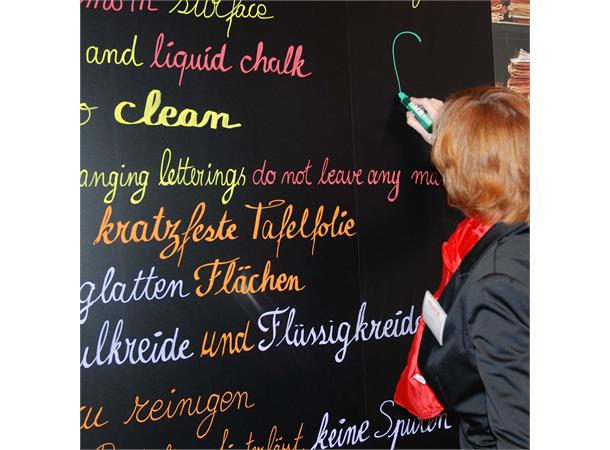 surface
and liquid chalk
clean
anging letterings do not leave any ma
kratzfeste Tafelfolie
glatten Flächen
ulkreide und Flüssigkreide
zu reinigen
keine Spuren